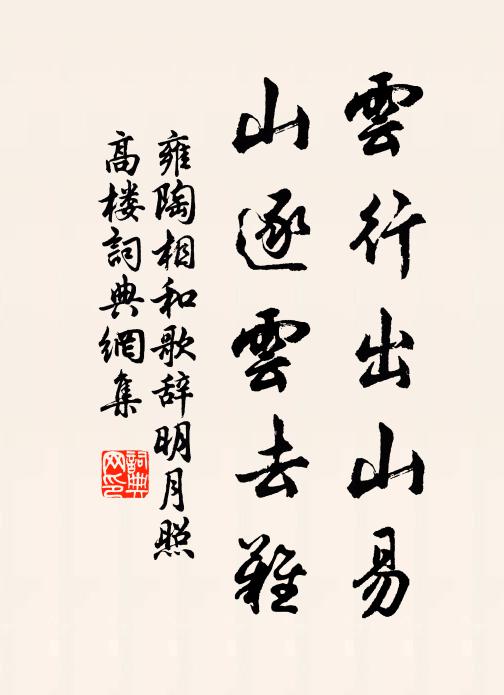 雲行出山易
山逐雲去難
雍陶相和歌辞明月照
高楼詞典網集
詞典网印